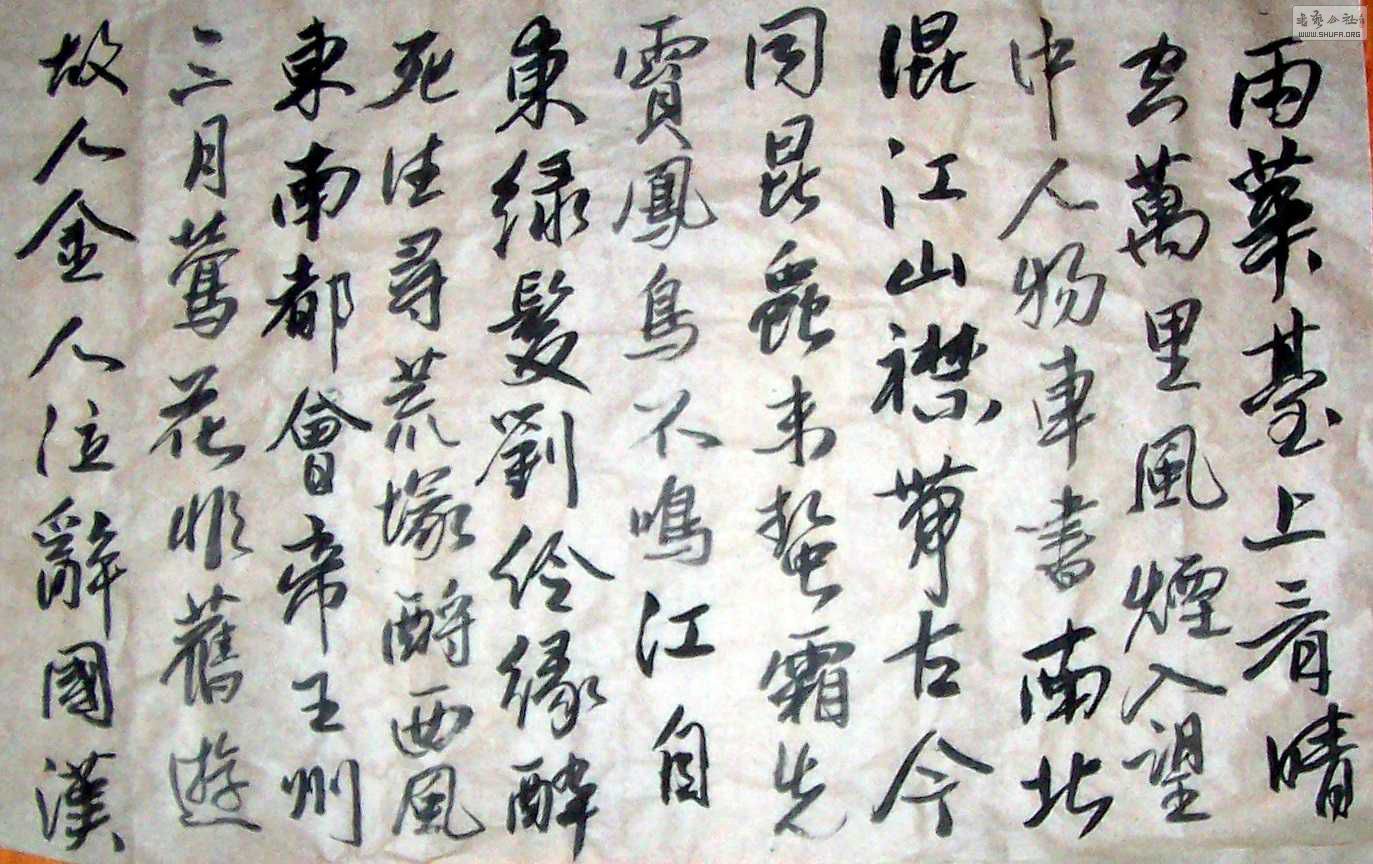 雨華臺上看晴
空萬里風煙入望
中人物車書南北
混江山襟帶古今
同昆蟲未蟄霜先
霣鳳鳥不鳴江自
東綠髮劉伶緣醉
死往尋荒塚酹西風
東南都會帝王州
三月鶯花舊遊
故人金人泣辭國漢
WWW.SHUFA.ORG